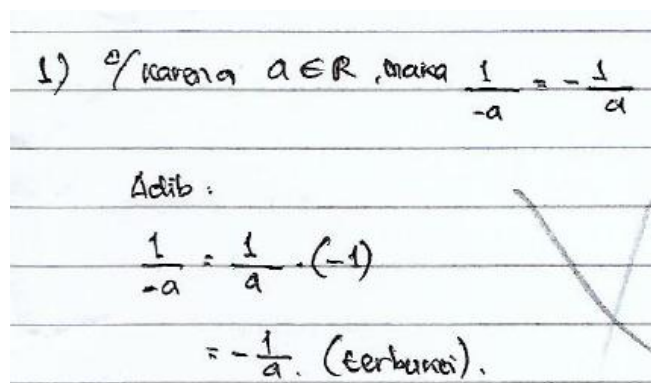 1) a/ Karena a ∈ R, maka 1/-a = - 1/a
Adib :
1/-a = 1/a . (-1)
= - 1/a. (terbukti).